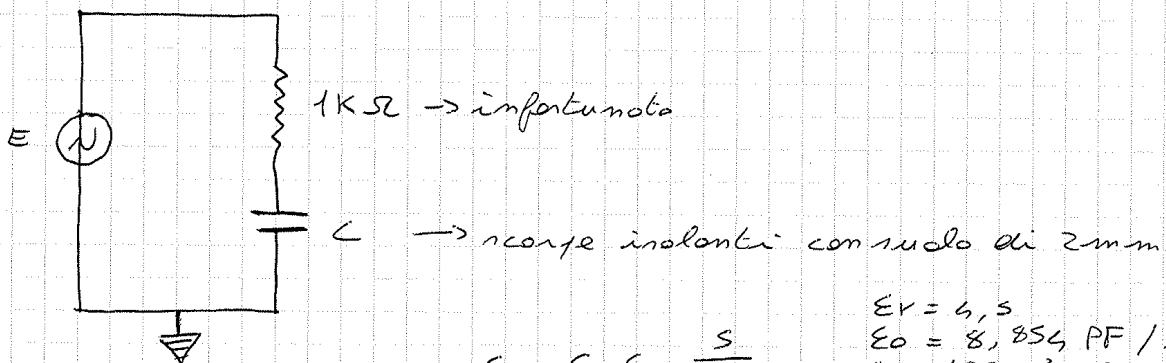 1KΩ → infortunato
E
C → scarpe isolanti con suola di 2mm
εr = 4,5
S
ε0 = 8,854 PF /